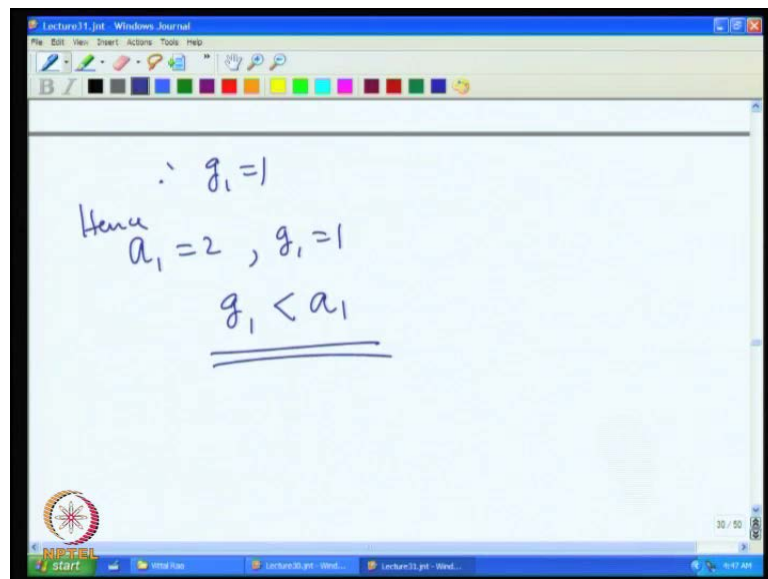 Lecture31.jnt - Windows Journal
File Edit View Insert Actions Tools Help
B I
∴ g₁ = 1
Hence
a₁ = 2 , g₁ = 1
g₁ < a₁
30 / 50
NPTEL
start Vittal Rao Lecture30.jnt - Wind... Lecture31.jnt - Wind... 4:47 AM